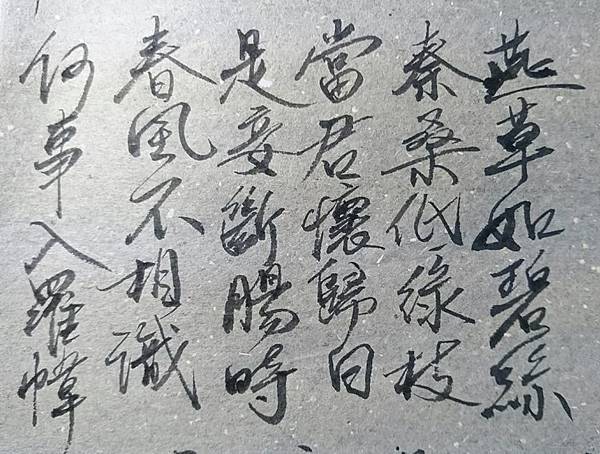 燕草如碧絲
秦桑低綠枝
當君懷歸日
是妾斷腸時
春風不相識
何事入羅幃